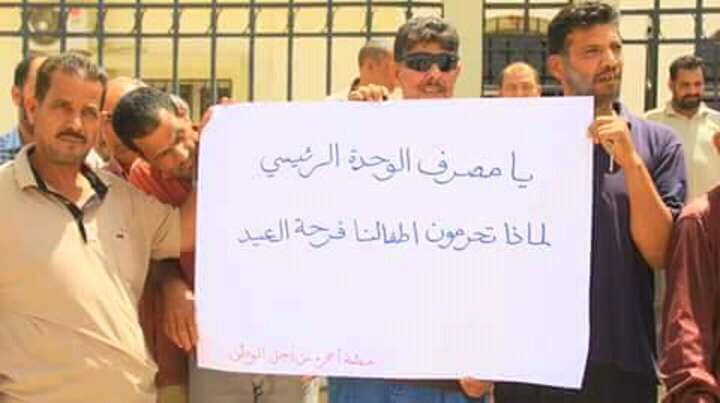 يا مصرف الوحدة الرئيسي
لماذا تحرمون اطفالنا فرحة العيد
من أجل الوطن